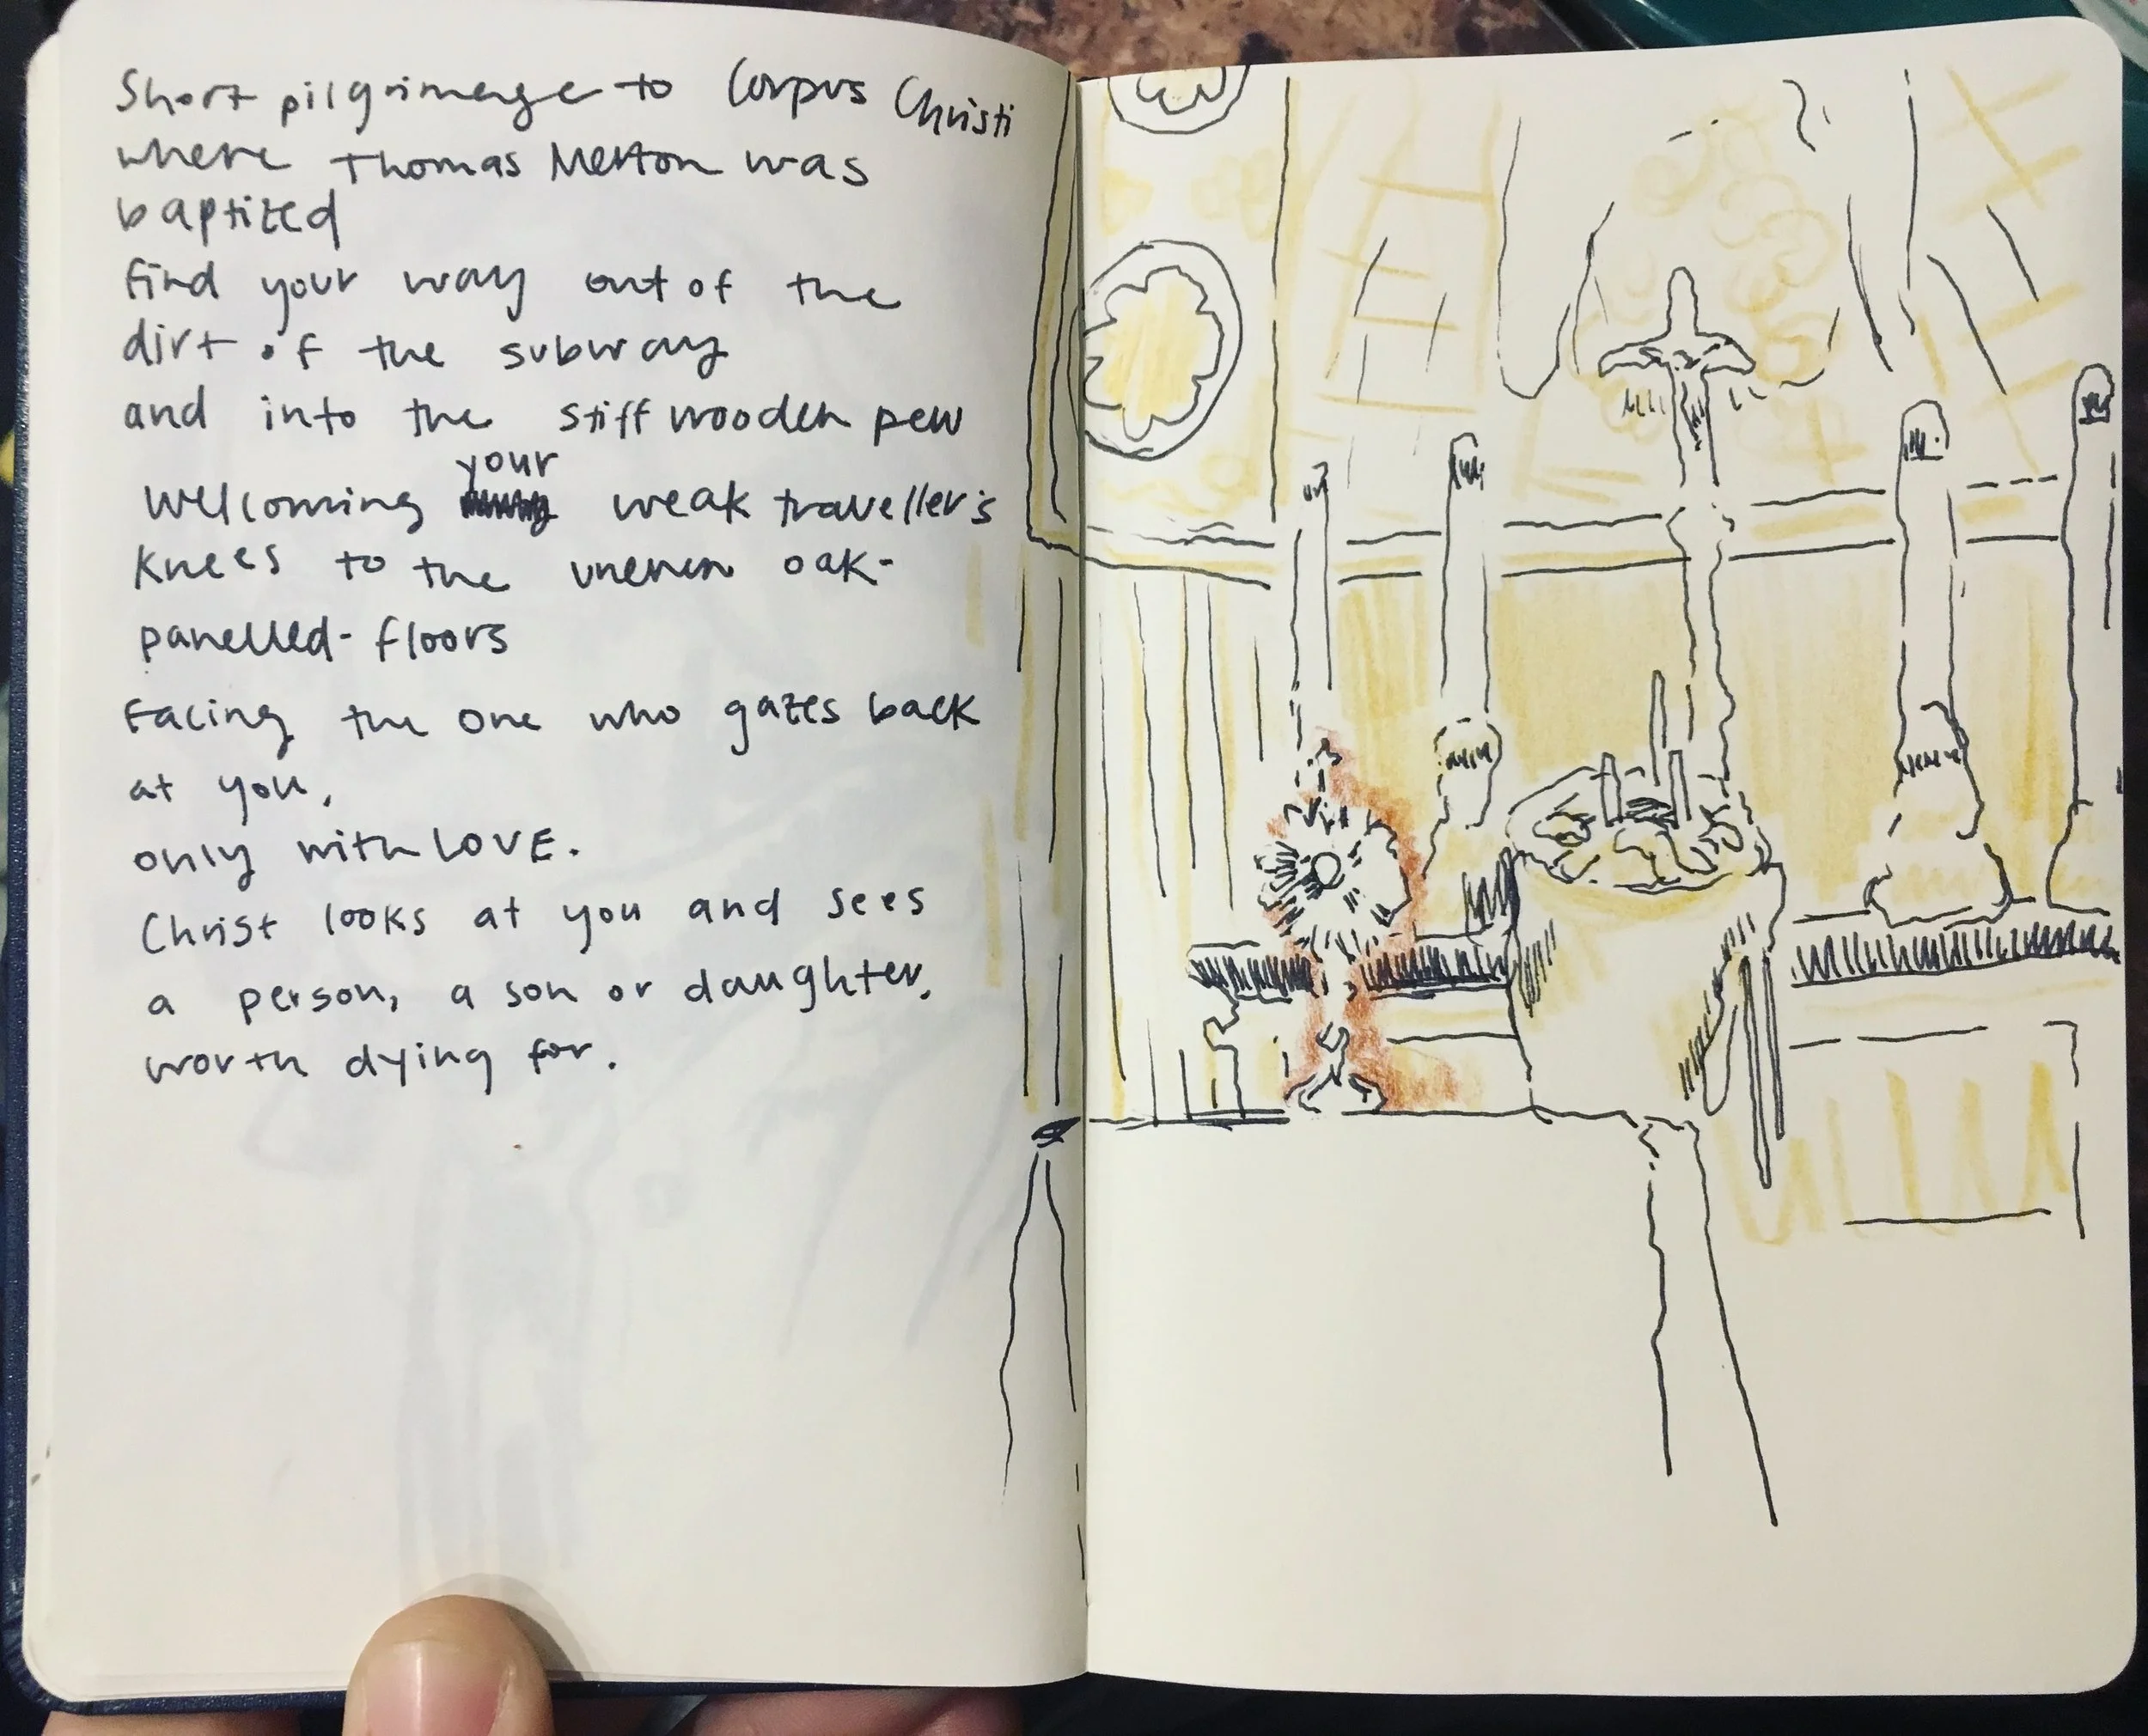 Short pilgrimage to Corpus Christi
where Thomas Merton was
baptized
find your way out of the
dirt of the subway
and into the stiff wooden pew
Welcoming your weak traveller's
knees to the uneven oak-
panelled-floors
Facing the one who gazes back
at you,
only with LOVE.
Christ looks at you and sees
a person, a son or daughter,
worth dying for.